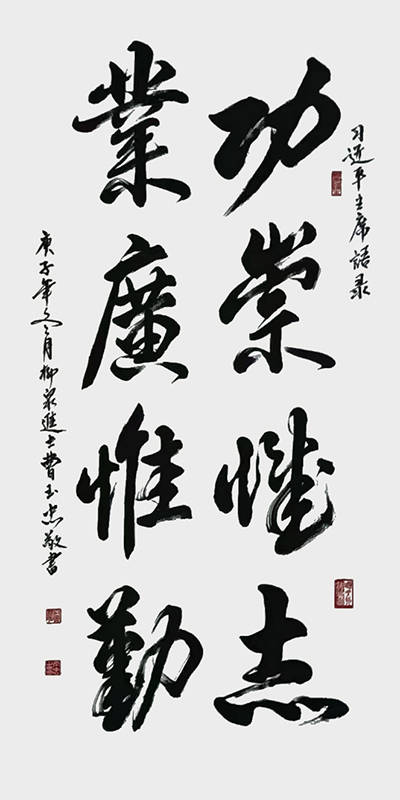 习近平主席語录
功崇惟志
業廣惟勤
庚子年冬月柳泉進士費玉忠敬書